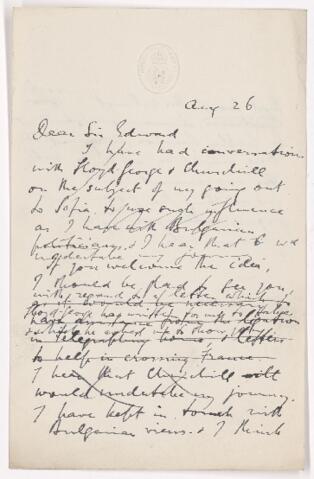 Aug 26
Dear Sir Edward
I have had conversations
with Lloyd George & Churchill
on the subject of my going out
to Sofia, to use such influence
as I have with Bulgarian
politicians, & I hear that
undertake my journey.
If you welcome the idea,
I should be glad to see you,
with regard to a letter which
Lloyd George has written for me to
in telegraphing home, & letters
to help in crossing France.
I hear that Churchill will
would undertake my journey.
I have kept in touch with
Bulgarian views, & I think